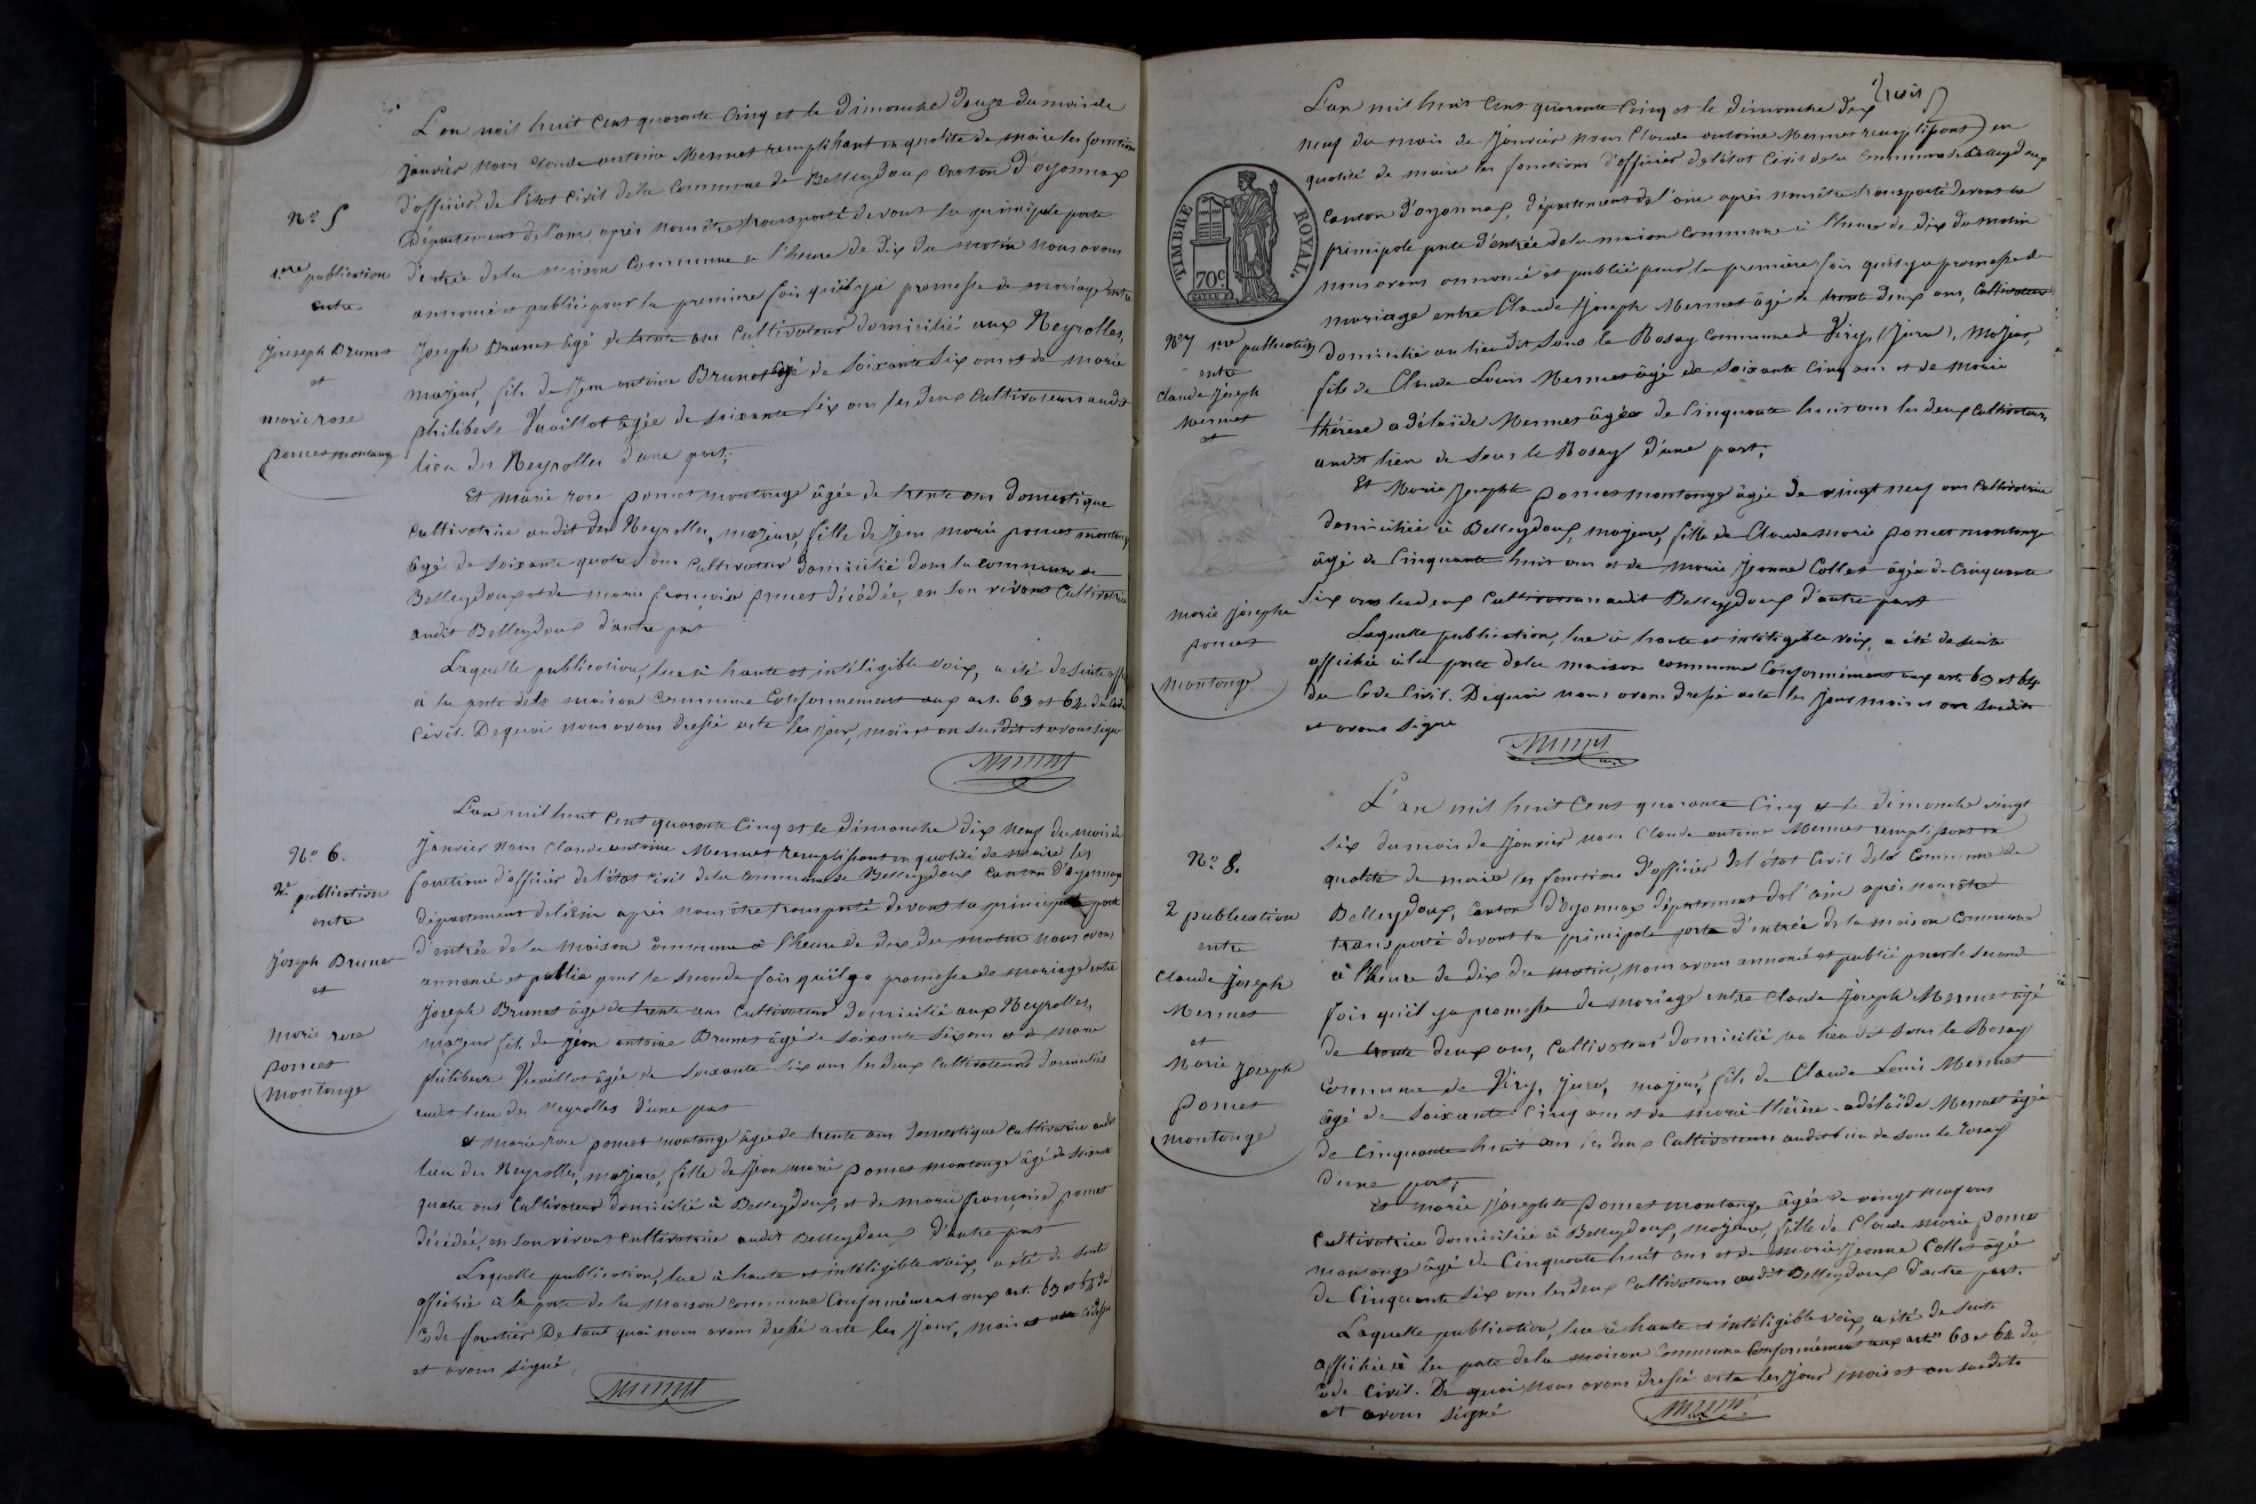 L'an mil huit cent quarante cinq et le Dimanche Douze du mois de
janvier nous Claude antoine Mermet remplissant en qualité de maire les fonctions
d'officier de l'état civil de la commune de Belleydoux canton d'oyonnax
Département de l'ain, après nous être transporté devant la principale porte
d'entrée de la maison commune à l'heure de dix du matin nous avons
annoncé et publié pour la premiere fois qu'il y a promesse de mariage entre
Joseph Brunet âgé de trente ans Cultivateur domicilié aux Neyrolles,
majeur, fils de Jean antoine Brunet âgé de soixante six ans et de marie
philiberte Vuaillat âgée de soixante six ans les deux Cultivateurs audit
lieu des Neyrolles d'une part;
Et marie rose poncet montange âgée de trente ans Domestique
Cultivatrice audit des Neyrolles, majeure, fille de Jean marie poncet montange
âgé de soixante quatre ans Cultivateur domicilié dans la commune de
Belleydoux et de marie françoise poncet décédée, en son vivant Cultivatrice
audit Belleydoux d'autre part
Laquelle publication, lue à haute et intéligible voix, a été de suite aff
à la porte de la maison commune Conformément aux art. 63 et 64 du Code
Civil. De quoi nous avons dressé acte les jour, mois et an susdits et avons signé
Mermet
N.° 5
1ere publication
entre
Joseph Brunet
et
marie rose
poncet montange
L'an mil huit cent quarante cinq et le Dimanche dix neuf du mois de
Janvier nous Claude antoine Mermet remplissant en qualité de maire les
fonctions d'officier de l'état civil de la commune de Belleydoux canton d'Oyonnax
département de l'ain après nous être transporté devant la principale porte
d'entrée de la maison commune à l'heure de dix du matin nous avons
annoncé et publié pour la seconde fois qu'il y a promesse de mariage entre
Joseph Brunet âgé de trente ans Cultivateur domicilié aux Neyrolles,
majeur fils de jean antoine Brunet âgé de soixante six ans et de marie
philiberte Vuaillat âgée de soixante six ans les deux Cultivateurs domiciliés
audit lieu des Neyrolles d'une part
et marie rose poncet montange âgée de trente ans Domestique Cultivatrice audit
lieu des Neyrolles, majeure, fille de Jean marie poncet montange âgé de soixante
quatre ans Cultivateur domicilié à Belleydoux, et de marie françoise poncet
décédée, en son vivant Cultivatrice audit Belleydoux d'autre part
Laquelle publication, lue à haute et intéligible voix, a été de suite
affichée à la porte de la maison commune Conformément aux art. 63 et 64 du
Code De tout quoi nous avons dressé acte les jour, mois et an
et avons signé.
Mermet
N.° 6.
2e publication
entre
Joseph Brunet
et
Marie rose
poncet
Montange
trois
L'an mil huit cent quarante cinq et le dimanche dix
neuf du mois de Janvier nous Claude antoine Mermet remplissant en
qualité de maire les fonctions d'officier de l'état civil de la commune de Belleydoux
canton d'oyonnax, département de l'ain après nous être transporté devant la
principale porte d'entrée de la maison commune à l'heure de dix du matin
nous avons annoncé et publié pour la premiere fois qu'il y a promesse de
mariage entre Claude Joseph Mermet âgé de trente deux ans, Cultivateur
domicilié au lieu dit sous le Rosay commune de Viry, (Jura), majeur,
fils de Claude Louis Mermet âgé de soixante cinq ans et de marie
thérèse adélaïde Mermet âgée de cinquante huit ans les deux Cultivateurs
audit lieu de sous le Rosay d'une part;
Et Marie Josephte poncet montange âgée de vingt neuf ans Cultivatrice
domiciliée à Belleydoux, majeure, fille de Claude marie poncet montange
âgé de cinquante huit ans et de marie Jeanne Collet âgée de cinquante
six ans les deux Cultivateurs audit Belleydoux d'autre part
Laquelle publication, lue à haute et intéligible voix, a été de suite
affichée à la porte de la maison commune Conformément aux art. 63 et 64
du Code Civil. De quoi nous avons dressé acte les jour mois et an susdits
et avons signé
Mermet
TIMBRE ROYAL.
70c
N.° 7 1ere publication
entre
Claude Joseph
Mermet
et
Marie Josephe
poncet
Montange
L'an mil huit cent quarante cinq et le dimanche vingt
six du mois de Janvier nous Claude antoine Mermet remplissant en
qualité de maire les fonctions d'officier de l'état civil de la commune de
Belleydoux, canton d'Oyonnax département de l'ain après nous être
transporté devant la principale porte d'entrée de la maison commune
à l'heure de dix du matin, nous avons annoncé et publié pour la seconde
fois qu'il y a promesse de mariage entre Claude Joseph Mermet âgé
de trente deux ans, cultivateur domicilié au lieu dit sous le Rosay
commune de Viry, Jura, majeur, fils de Claude Louis Mermet
âgé de soixante cinq ans et de marie thérèse adélaïde Mermet âgée
de cinquante huit ans les deux Cultivateurs audit lieu de sous le rosay
d'une part;
Et marie Josephte poncet montange âgée de vingt neuf ans
Cultivatrice domiciliée à Belleydoux, majeure, fille de Claude marie poncet
montange âgé de cinquante huit ans et de marie Jeanne Collet âgée
de cinquante six ans les deux Cultivateurs audit Belleydoux d'autre part.
Laquelle publication, lue à haute et intéligible voix, a été de suite
affichée à la porte de la maison commune Conformément aux art. 63 et 64 du
Code Civil. De quoi nous avons dressé acte les jour mois et an susdits
et avons signé
Mermet
N.° 8.
2 publication
entre
Claude Joseph
Mermet
et
Marie Joseph
Poncet
Montange